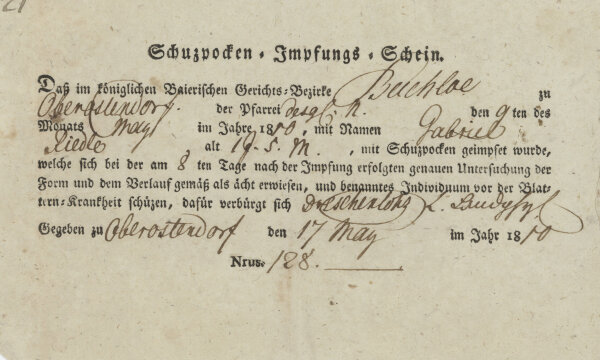 21
Schuzpocken-Impfungs-Schein.
Daß im königlichen Baierischen Gerichts-Bezirke Buchloe zu
Oberostendorf. der Pfarrei desgl. den 9ten des
Monats May im Jahre 1810, mit Namen Gabriel
Riedle, alt 19. J. M., mit Schuzpocken geimpfet wurde,
welche sich bei der am 8 ten Tage nach der Impfung erfolgten genauen Untersuchung der
Form und dem Verlauf gemäß als ächt erwiesen, und benanntes Individuum vor der Blat-
tern-Krankheit schüzen, dafür verbürgt sich
Gegeben zu Oberostendorf den 17 May im Jahr 1810
Nrus. 128.